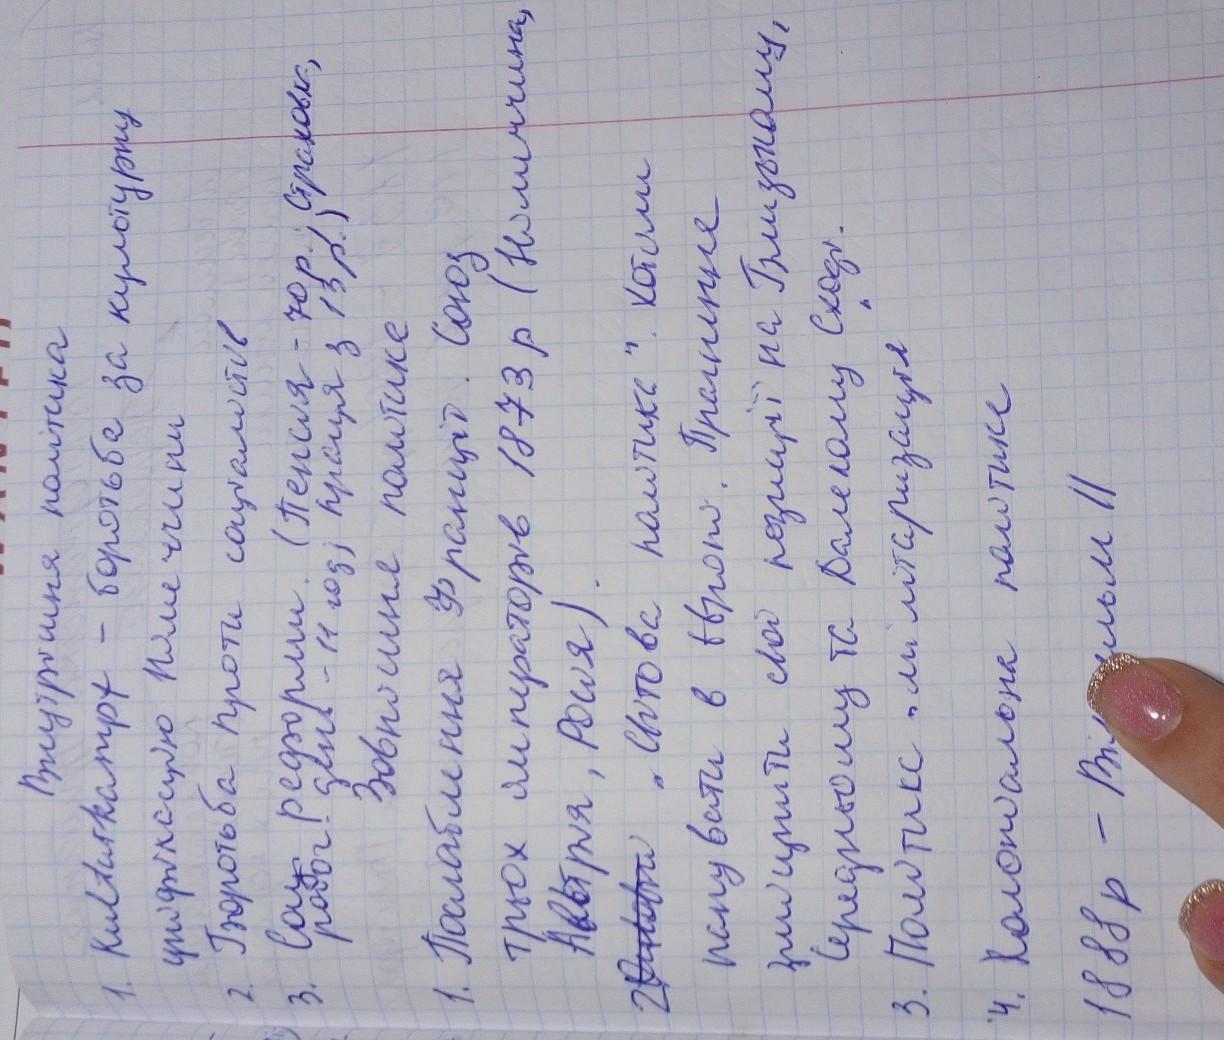 Внутрішня політика
1. Kulturkampf – боротьба за культурну
уніфікацію Німеччини
2. Боротьба проти соціалістів
3. Соц. реформи. (Пенсія - 70 р., страховка,
робоч. день - 11 год, праця з 13 р.)
Зовнішня політика
1. Послаблення Франції. Союз
трьох імператорів 1873 р (Німеччина,
Австрія, Росія).
2. „Світова політика". Хотіли
панувати в Європі. Прагнення
зміцнити свої позиції на Близькому,
Середньому та Далекому Сході.
3. Політика „мілітаризація"
4. Колоніальна політика
1888р – Вільгельм II